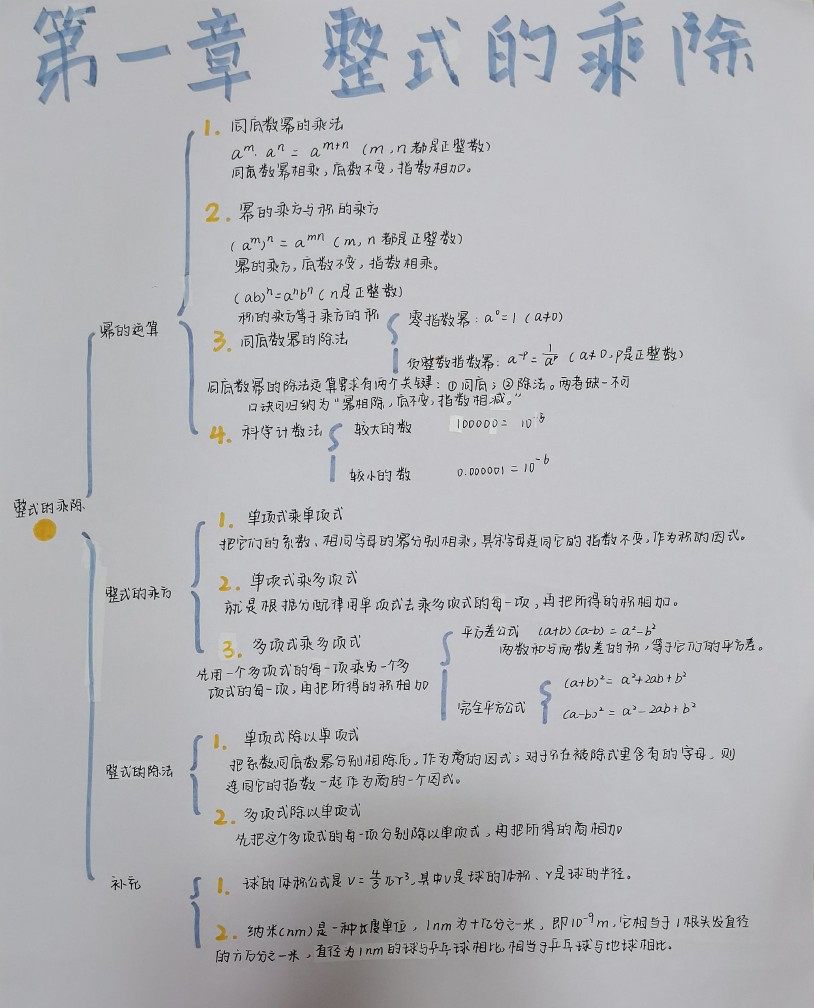 第一章 整式的乘除
1. 同底数幂的乘法
a^m · a^n = a^{m+n} (m,n都是正整数)
同底数幂相乘,底数不变,指数相加。
2. 幂的乘方与积的乘方
(a^m)^n = a^{mn} (m,n都是正整数)
幂的乘方,底数不变,指数相乘。
(ab)^n=a^n b^n (n是正整数)
积的乘方等于乘方的积
幂的运算
3. 同底数幂的除法
零指数幂: a^0=1 (a≠0)
负整数指数幂: a^{-p}=\frac{1}{a^p} (a≠0,p是正整数)
同底数幂的除法运算需求有两个关键:①同底;②除法。两者缺一不可
口诀可归纳为“幂相除,底不变,指数相减。”
4. 科学计数法
较大的数 100000= 10^5
较小的数 0.000001=10^{-6}
整式的乘除
1. 单项式乘单项式
把它们的系数、相同字母的幂分别相乘,其余字母连同它的指数不变,作为积的因式。
整式的乘方
2. 单项式乘多项式
就是根据分配律用单项式去乘多项式的每一项,再把所得的积相加。
3. 多项式乘多项式
先用一个多项式的每一项乘另一个多
项式的每一项,再把所得的积相加
平方差公式 (a+b)(a-b)=a²-b²
两数和与两数差的积,等于它们的平方差。
完全平方公式
(a+b)²=a²+2ab+b²
(a-b)²=a²-2ab+b²
整式的除法
1. 单项式除以单项式
把系数同底数幂分别相除后,作为商的因式;对于只在被除式里含有的字母,则
连同它的指数一起作为商的一个因式。
2. 多项式除以单项式
先把这个多项式的每一项分别除以单项式,再把所得的商相加
补充
1. 球的体积公式是V=\frac{4}{3}πr³,其中V是球的体积、r是球的半径。
2. 纳米(nm)是一种长度单位,1nm为十亿分之一米,即10^{-9}m,它相当于1根头发直径
的六万分之一米,直径为1nm的球与乒乓球相比,相当于乒乓球与地球相比。